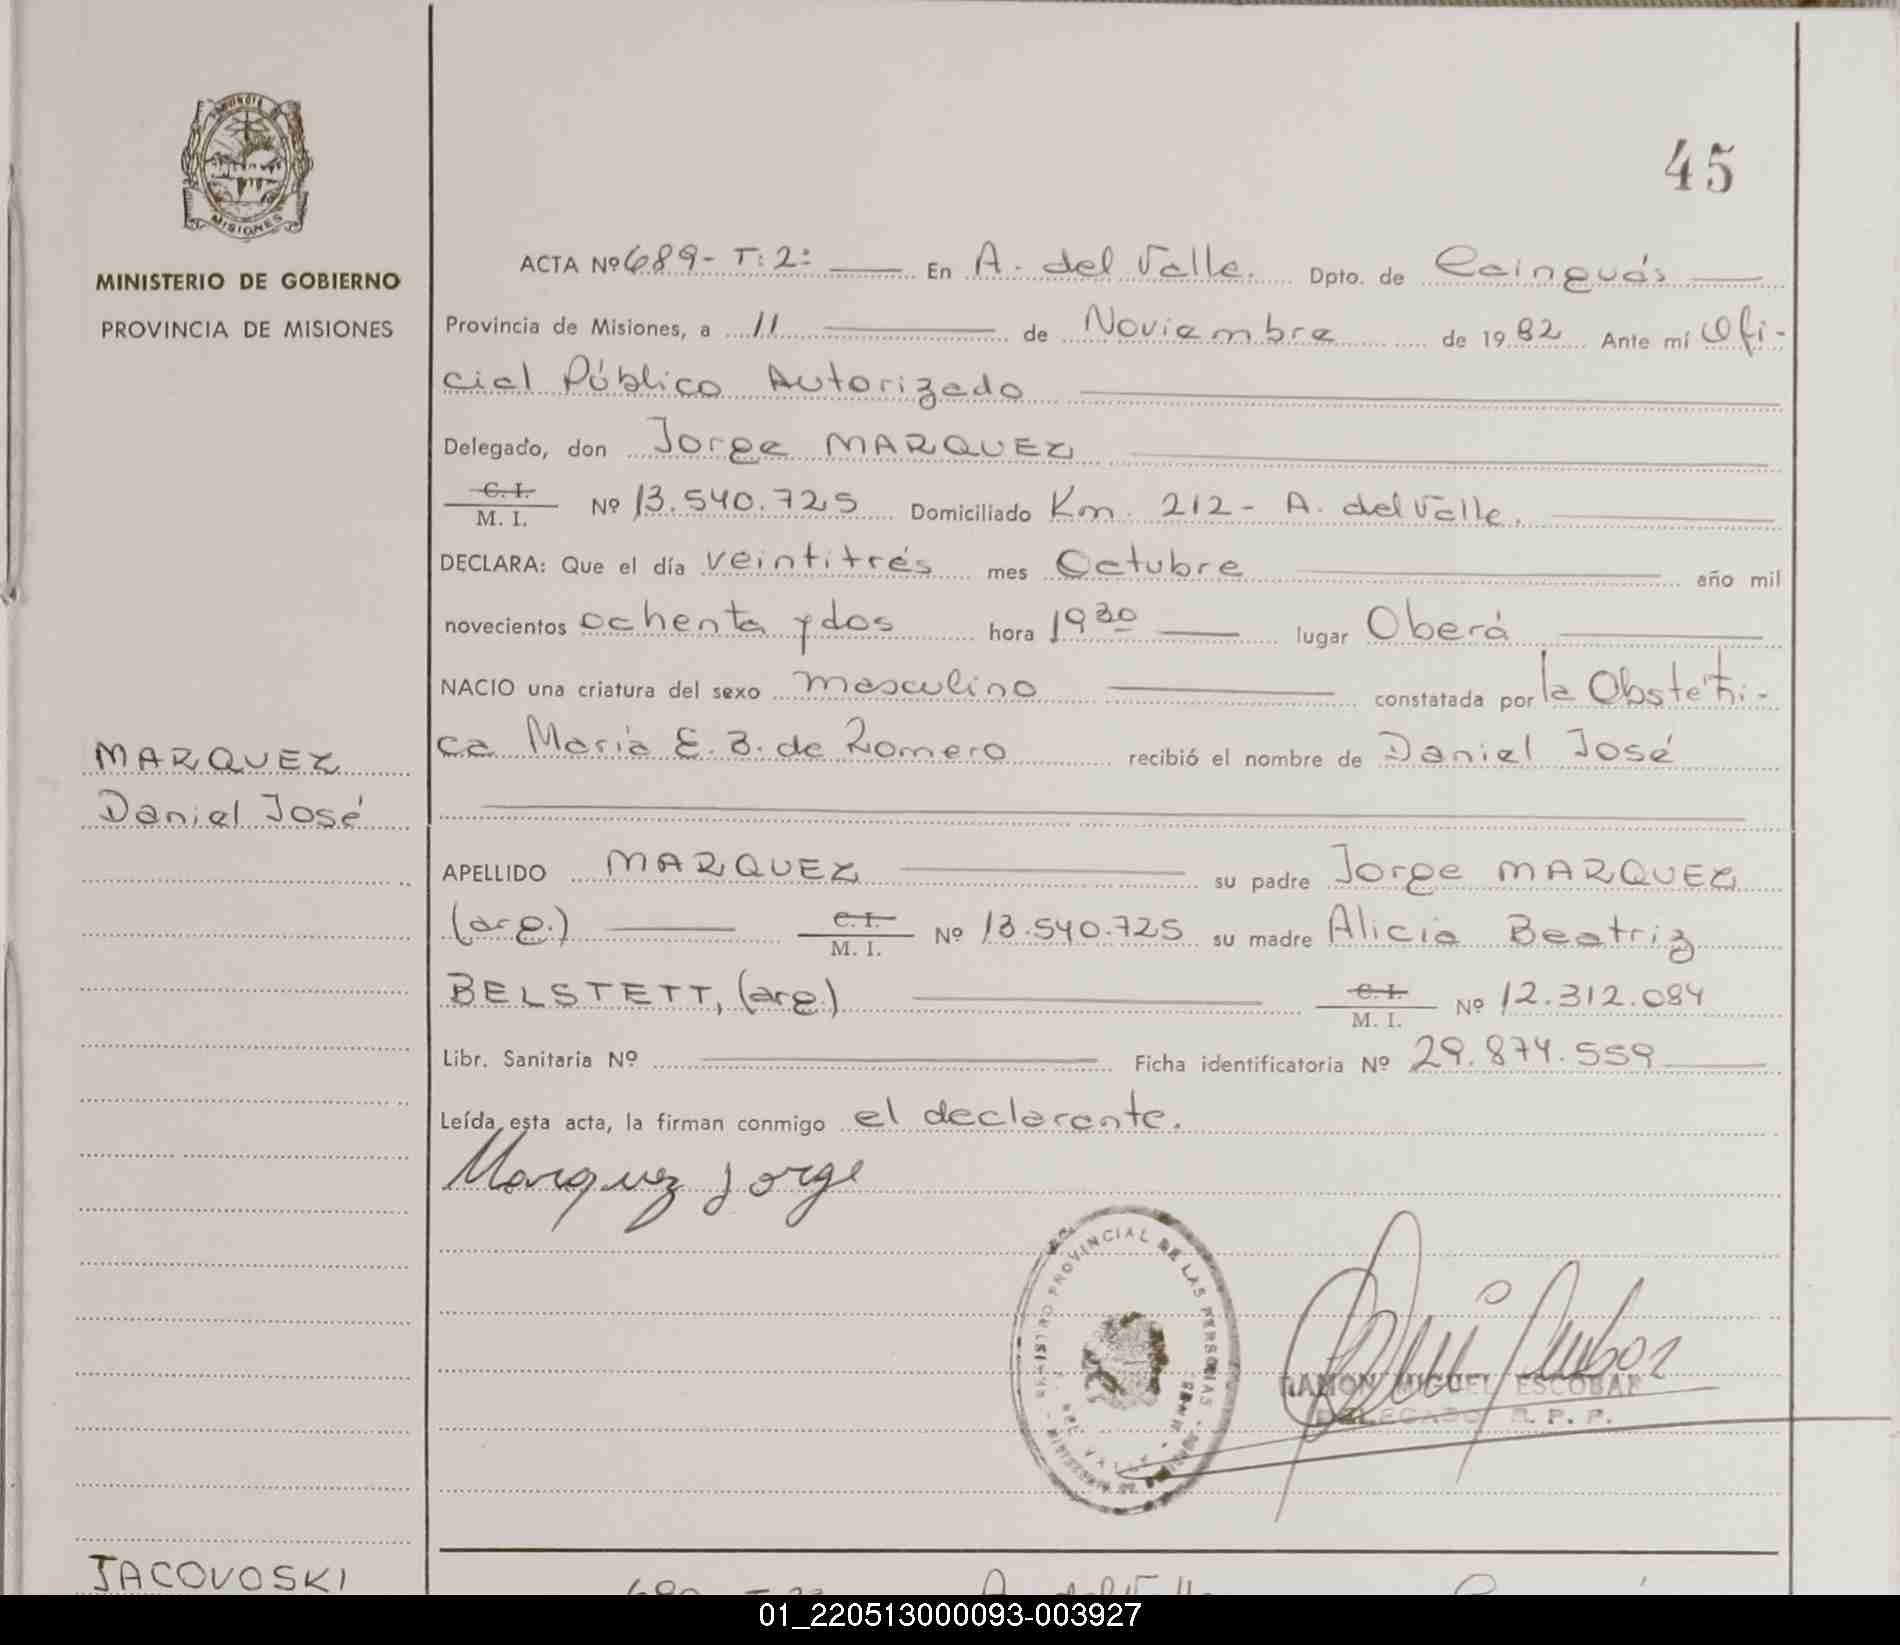 MISIONES
MINISTERIO DE GOBIERNO
PROVINCIA DE MISIONES
45
ACTA Nº 689- T: 2: En A. del Valle. Dpto. de Cainguás
Provincia de Misiones, a 11 de Noviembre de 1982 Ante mí Ofi-
cial Público Autorizado
Delegado, don Jorge MARQUEZ
C. I.
M. I. Nº 13.540.725 Domiciliado Km. 212- A. del Valle.
DECLARA: Que el día veintitrés mes Octubre año mil
novecientos ochenta y dos hora 19 30 lugar Oberá
NACIO una criatura del sexo masculino constatada por la Obstetri-
ca María E. B. de Romero recibió el nombre de Daniel José
MARQUEZ
Daniel José
APELLIDO MARQUEZ su padre Jorge MARQUEZ
(arg.) C. I.
M. I. Nº 13.540.725 su madre Alicia Beatriz
BELSTETT, (arg.) C. I.
M. I. Nº 12.312.084
Libr. Sanitaria Nº Ficha identificatoria Nº 29.874.559
Leída esta acta, la firman conmigo el declarante.
Marquez Jorge
PROVINCIAL DE LAS PERSONAS
RAMON MIGUEL ESCOBAR
DELEGADO R. P. P.
JACOVOSKI
01_220513000093-003927